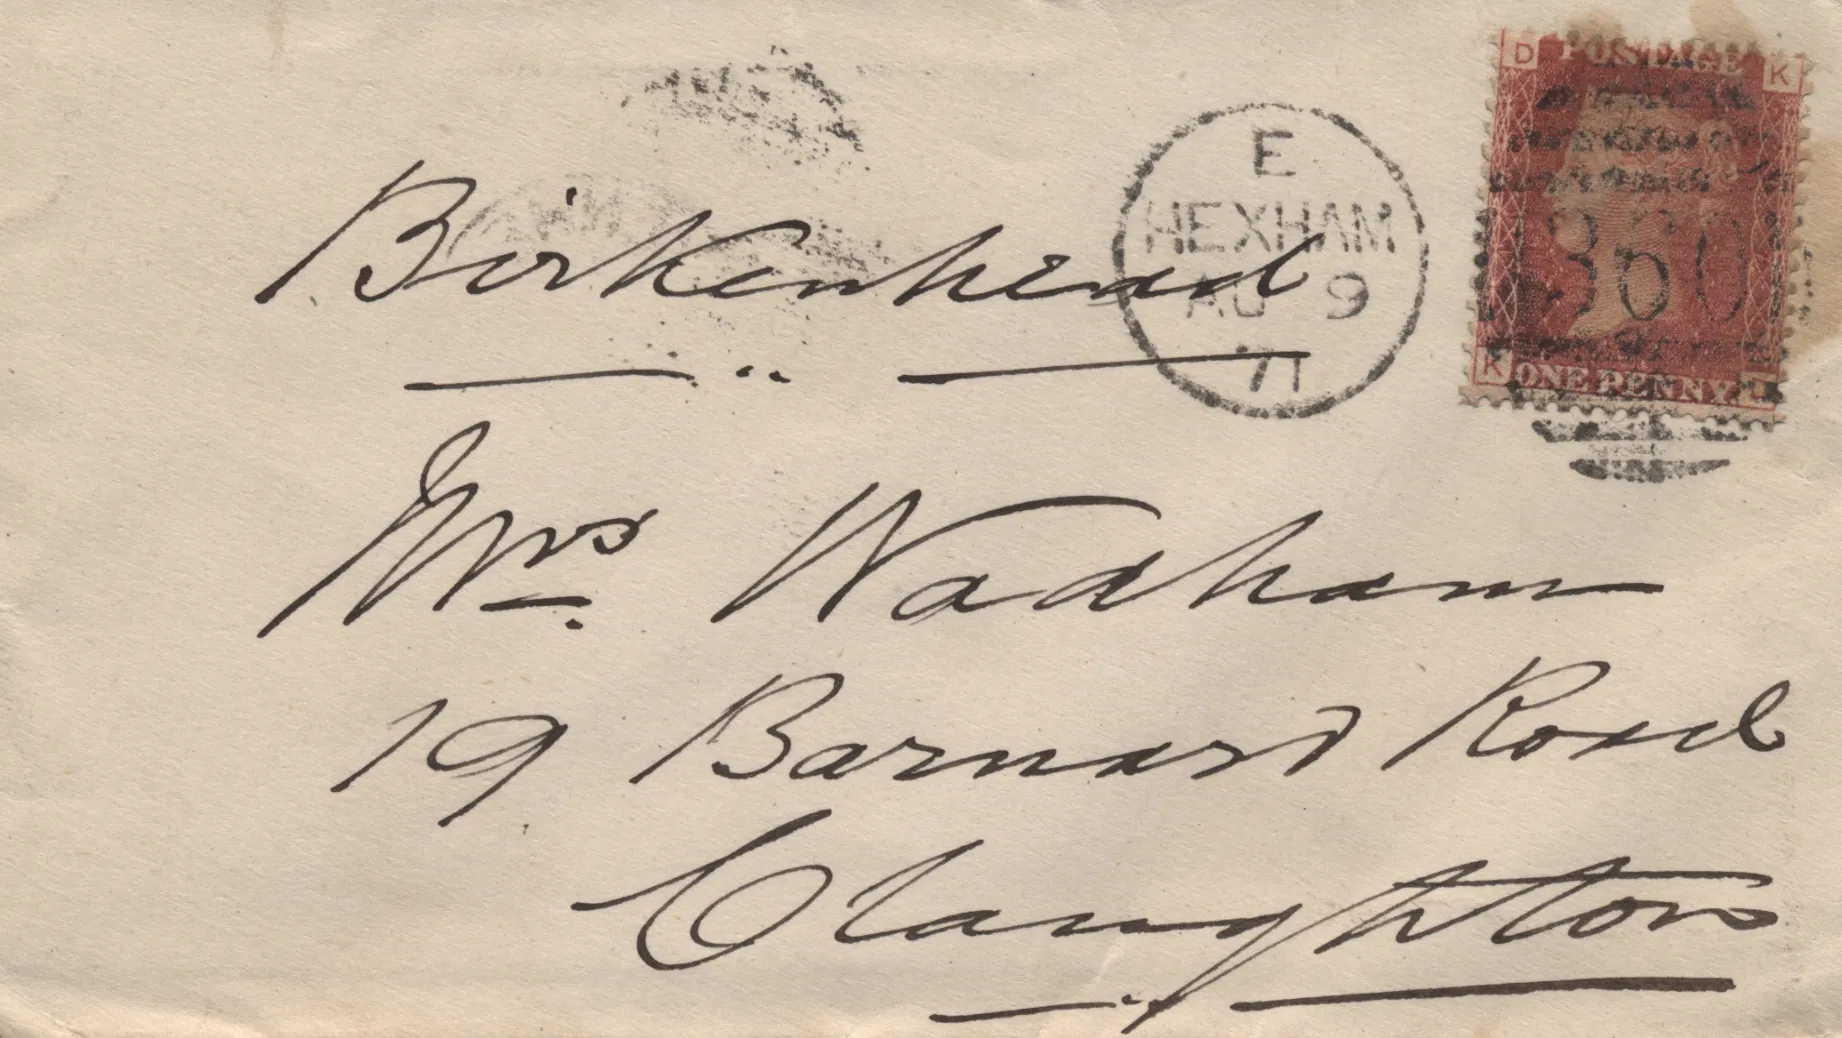 D POSTAGE K
E
HEXHAM
AU 9
71
360
K ONE PENNY. D
Birkenhead
Mrs Wadham
19 Barnard Road
Claughton